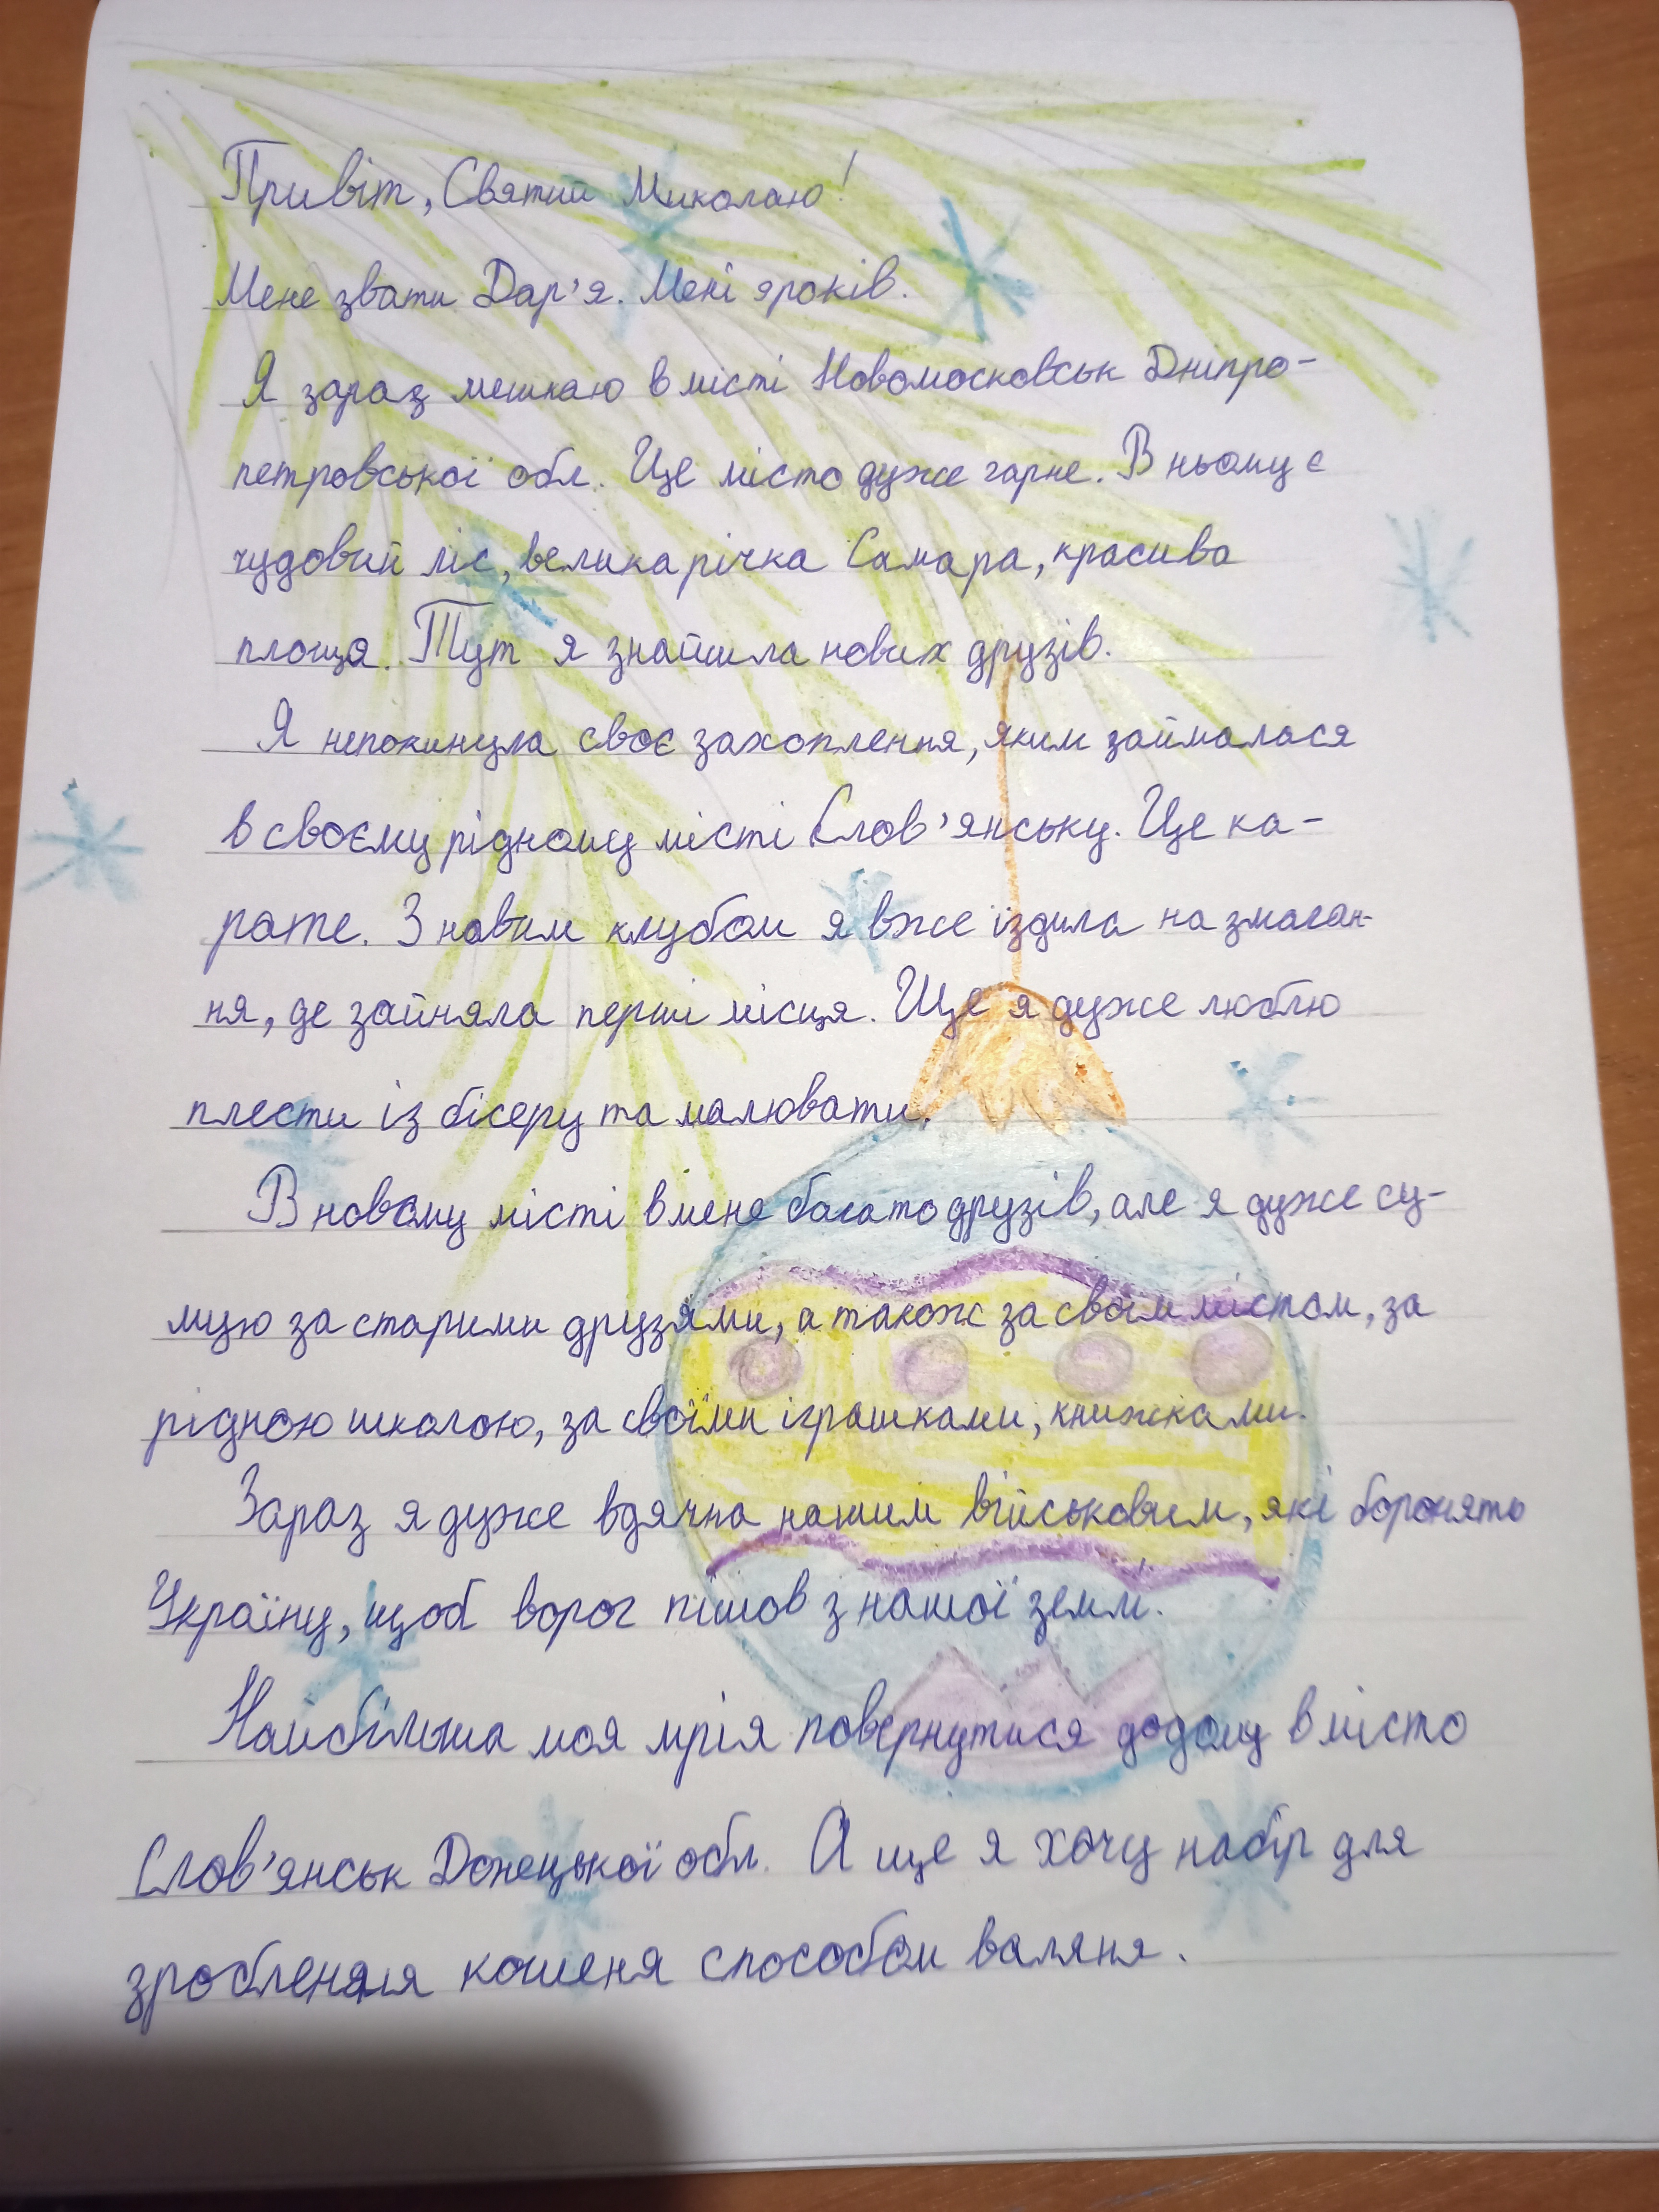 Привіт, Святий Миколаю!
Мене звати Дар'я. Мені 9 років.
Я зараз мешкаю в місті Новомосковськ Дніпро-
петровської обл. Це місто дуже гарне. В ньому є
чудовий ліс, велика річка Самара, красива
площа. Тут я знайшла нових друзів.
Я непокинула своє захоплення, яким займалася
в своєму рідному місті Слов'янську. Це ка-
рате. З новим клубом я вже їздила на змаган-
ня, де зайняла перші місця. Ще я дуже люблю
плести із бісеру та малювати.
В новому місті в мене багато друзів, але я дуже су-
мую за старими друзями, а також за своїм містом, за
рідною школою, за своїми іграшками, книжками.
Зараз я дуже вдячна нашим військовим, які боронять
Україну, щоб ворог пішов з нашої землі.
Найбільша моя мрія повернутися додому в місто
Слов'янськ Донецької обл. А ще я хочу набір для
зроблення кошеня способом валяня.